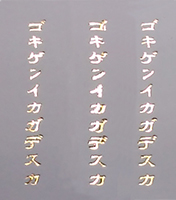 ゴキゲンイカガデスカ
ゴキゲンイカガデスカ
ゴキゲンイカガデスカ